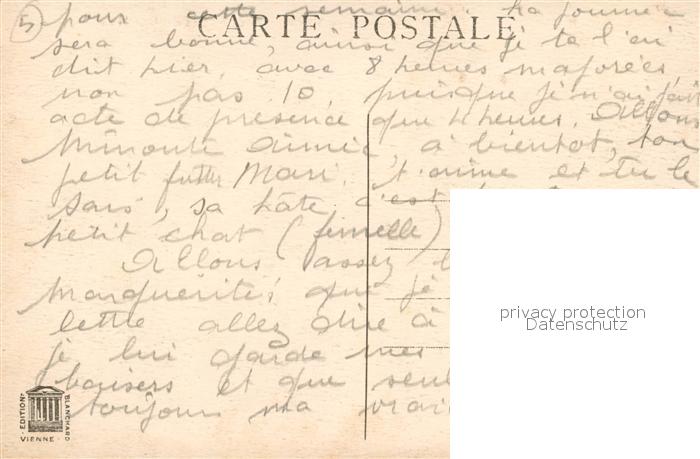 5 pour cette semaine. La journée
CARTE POSTALE
sera bonne, ainsi que je te l'ai
dit hier, avec 8 heures majorées,
non pas 10, puisque je n'ai fait
acte de présence que 4 heures. Allons
Minoute aimée, à bientôt, ton
petit futur Mari, t'aime et tu le
sais, sa hâte c'est
petit chat (femelle)
Allons assez
Marguerite, que je
lettre allez dire à
je lui garde mes
baisers et que seul
toujours ma vraie
EDITION BLANCHARD
VIENNE
privacy protection
Datenschutz